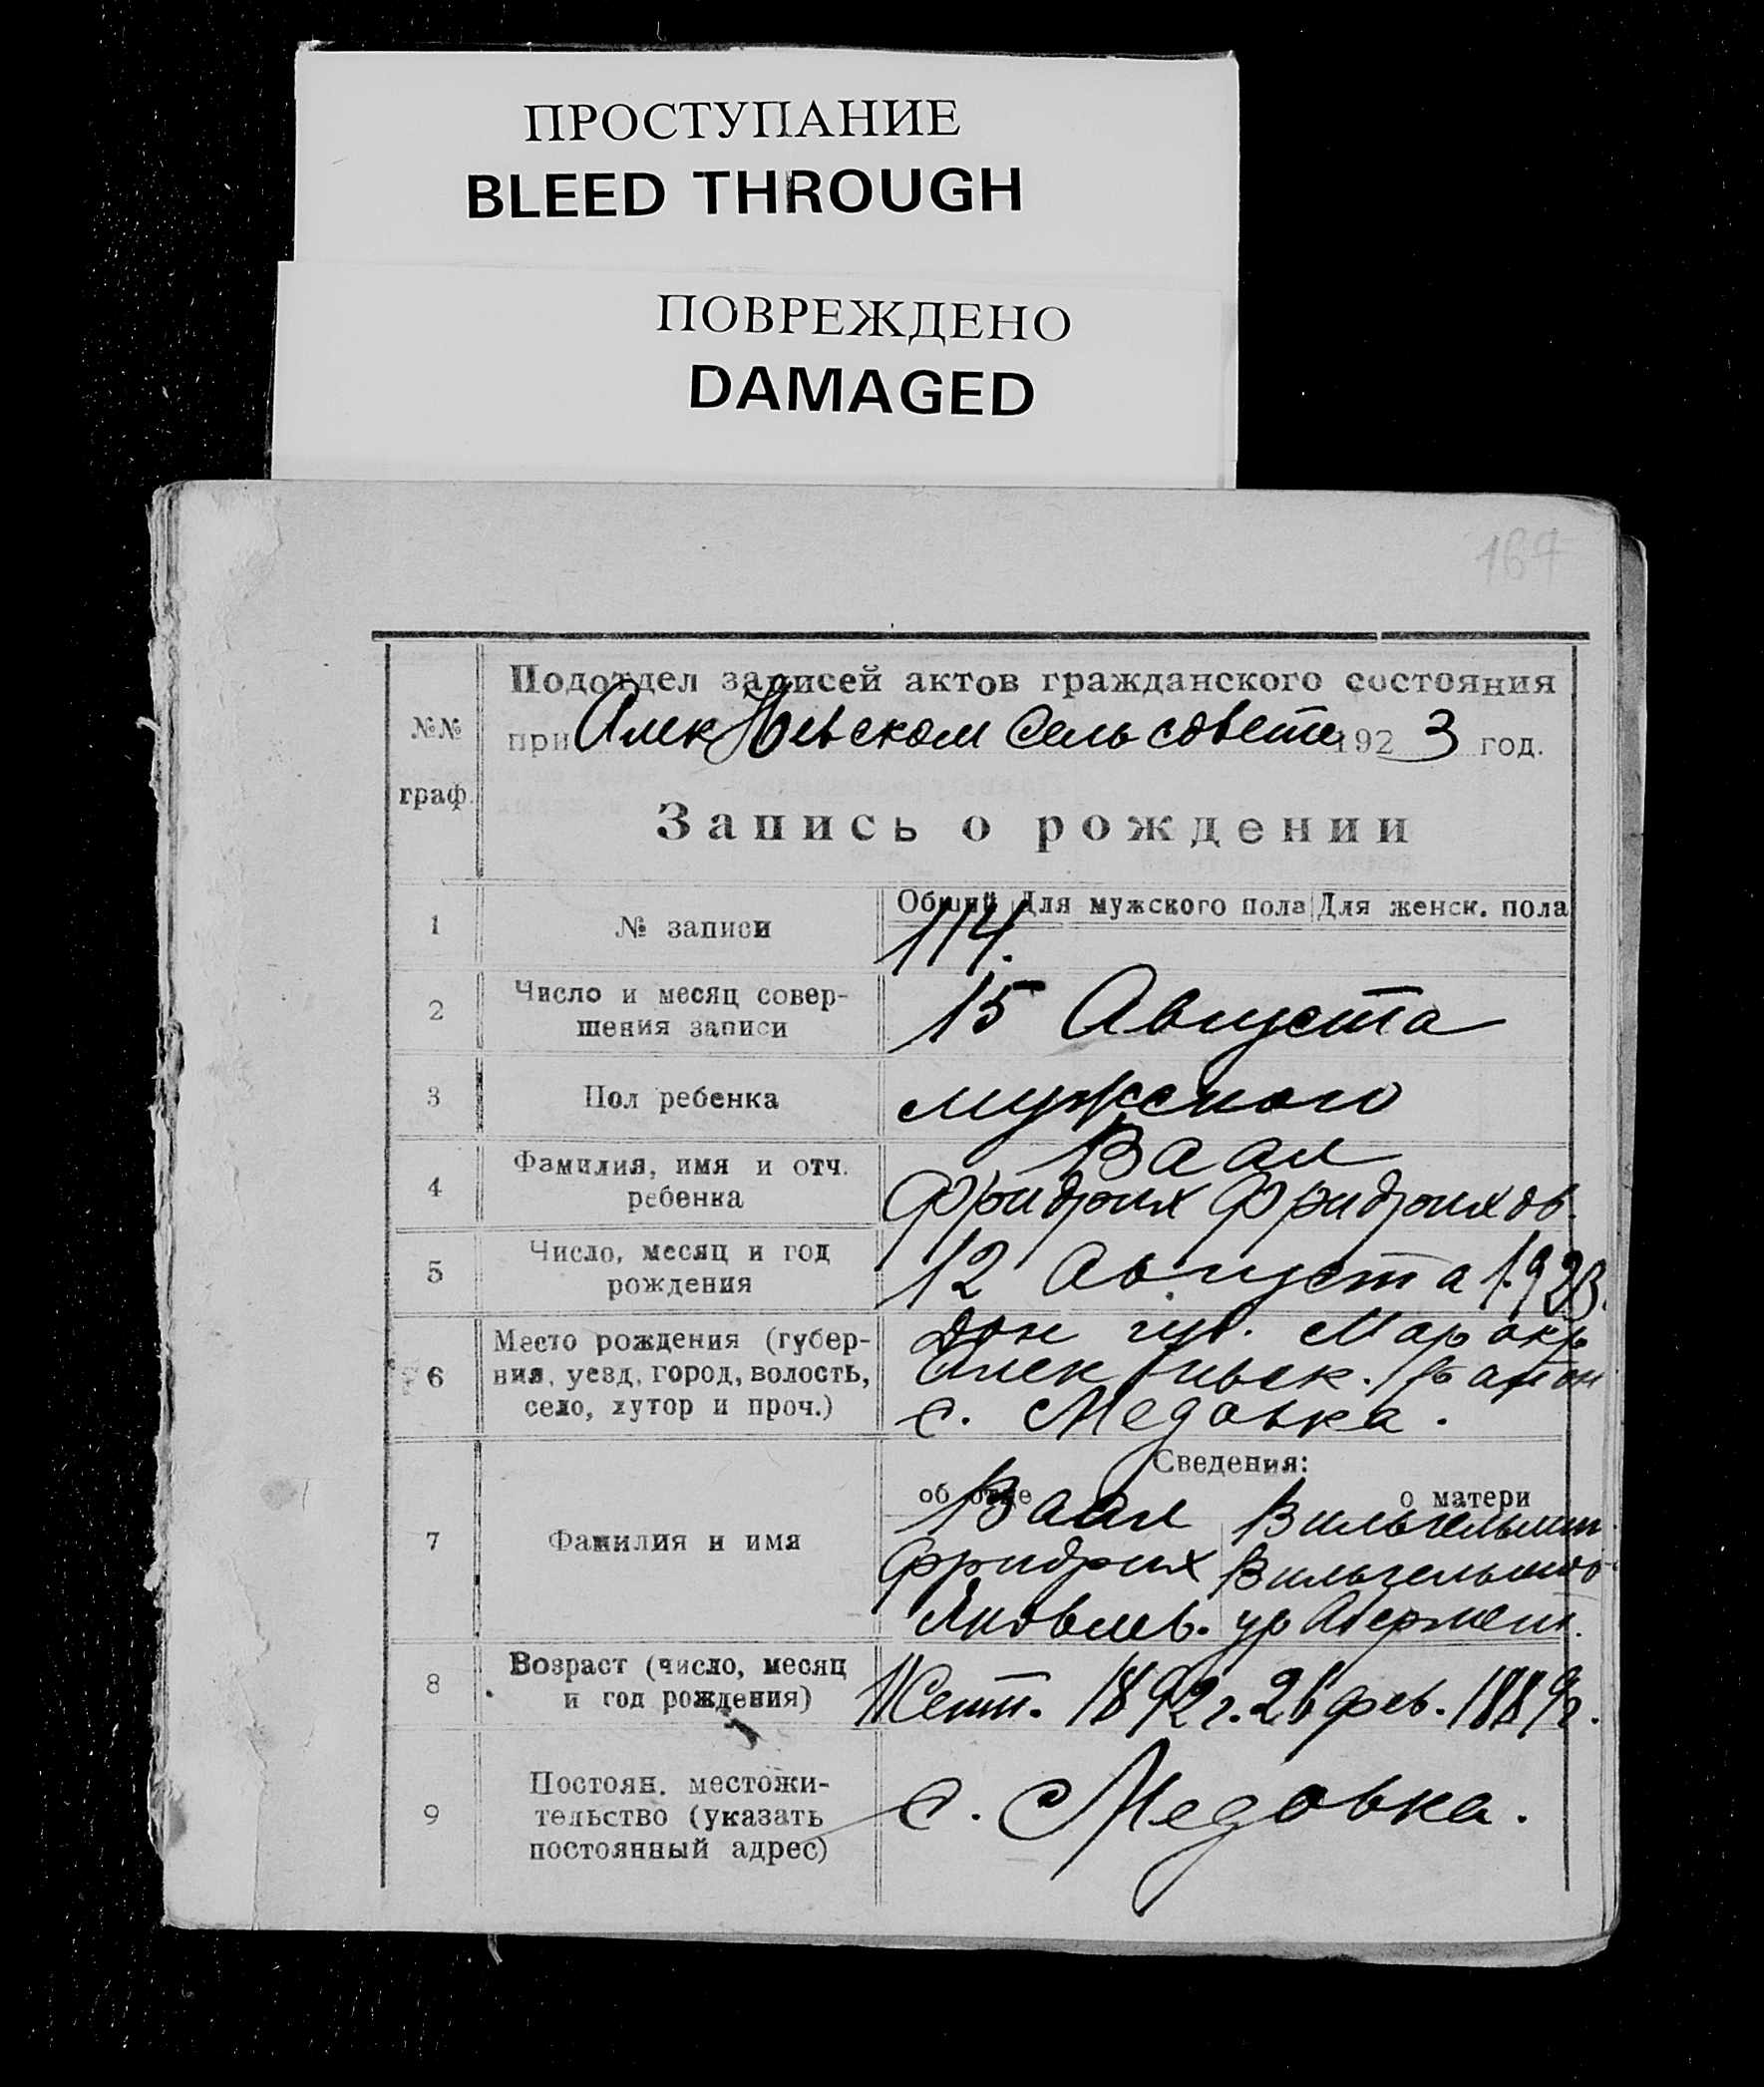 ПРОСТУПАНИЕ
BLEED THROUGH
ПОВРЕЖДЕНО
DAMAGED
164
Подотдел записей актов гражданского состояния
№№ граф.
при Алек Невском Сельсовете 1923 год.
Запись о рождении
Общий Для мужского пола Для женск. пола
1 № записи 114.
2 Число и месяц совер-
шения записи 15 Августа
3 Пол ребенка мужского
4 Фамилия, имя и отч.
ребенка
Ваал
Фридрих Фридрихов.
5 Число, месяц и год
рождения 12 Августа 1923.
6 Место рождения (губер-
ния, уезд, город, волость,
село, хутор и проч.)
Дон губ. Мар окр
Алек Невск.
с. Медовка.
Сведения:
об отце о матери
7 Фамилия и имя
Ваал Вильгельмин
Фридрих Вильгельмов
Яковлев. ур
8 Возраст (число, месяц
и год рождения)
11 Сент. 1892 г. 26 фев. 1889 г.
9 Постоян. местожи-
тельство (указать
постоянный адрес)
с. Медовка.